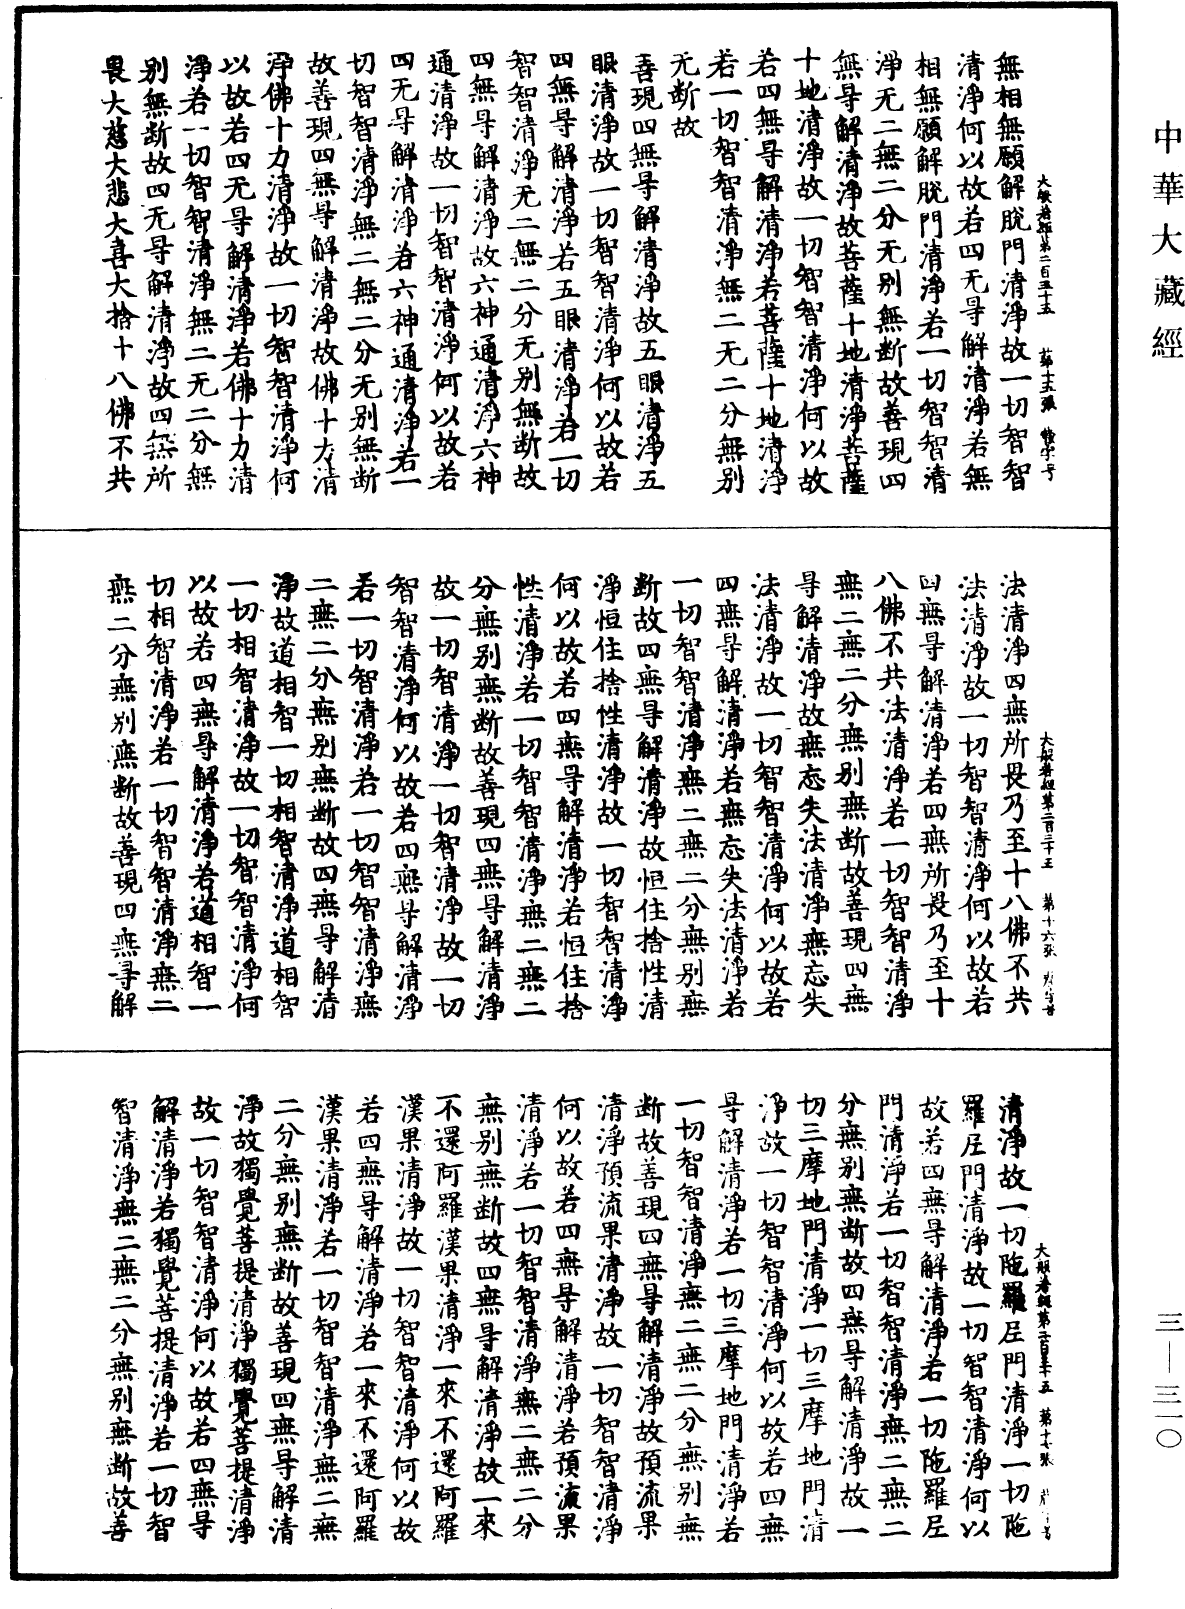 中華大藏經
大般若經第二百五十五　第十五張
無相無願解脫門清淨故一切智智
清淨何以故若四无㝵解清淨若無
相無願解脫門清淨若一切智智清
淨无二無二分无别無断故善現四
無㝵解清淨故菩薩十地清淨菩薩
十地清淨故一切智智清淨何以故
若四無㝵解清淨若菩薩十地清淨
若一切智智清淨無二无二分無別
无断故
善現四無㝵解清淨故五眼清淨五
眼清淨故一切智智清淨何以故若
四無㝵解清淨若五眼清淨若一切
智智清淨无二無二分无别無断故
四無㝵解清淨故六神通清淨六神
通清淨故一切智智清淨何以故若
四无㝵解清淨若六神通清淨若一
切智智清淨無二無二分无别無断
故善現四無㝵解清淨故佛十力清
淨佛十力清淨故一切智智清淨何
以故若四无㝵解清淨若佛十力清
淨若一切智智清淨無二无二分無
别無断故四无㝵解清淨故四無所
畏大慈大悲大喜大捨十八佛不共
大般若經第二百五十五　第十六張
法清淨四無所畏乃至十八佛不共
法清淨故一切智智清淨何以故若
四無㝵解清淨若四無所畏乃至十
八佛不共法清淨若一切智智清淨
無二無二分無别無断故善現四無
㝵解清淨故無忘失法清淨無忘失
法清淨故一切智智清淨何以故若
四無㝵解清淨若無忘失法清淨若
一切智智清淨無二無二分無别無
断故四無㝵解清淨故恒住捨性清
淨恒住捨性清淨故一切智智清淨
何以故若四無㝵解清淨若恒住捨
性清淨若一切智智清淨無二無二
分無别無断故善現四無㝵解清淨
故一切智清淨一切智清淨故一切
智智清淨何以故若四無㝵解清淨
若一切智清淨若一切智智清淨無
二無二分無别無断故四無㝵解清
淨故道相智一切相智清淨道相智
一切相智清淨故一切智智清淨何
以故若四無㝵解清淨若道相智一
切相智清淨若一切智智清淨無二
無二分無别無断故善現四無㝵解
大般若經第二百五十五　第十七張
清淨故一切陁羅尼門清淨一切陁
羅尼門清淨故一切智智清淨何以
故若四無㝵解清淨若一切陁羅尼
門清淨若一切智智清淨無二無二
分無别無断故四無㝵解清淨故一
切三摩地門清淨一切三摩地門清
淨故一切智智清淨何以故若四無
㝵解清淨若一切三摩地門清淨若
一切智智清淨無二無二分無别無
断故善現四無㝵解清淨故預流果
清淨預流果清淨故一切智智清淨
何以故若四無㝵解清淨若預流果
清淨若一切智智清淨無二無二分
無别無断故四無㝵解清淨故一來
不還阿羅漢果清淨一來不還阿羅
漢果清淨故一切智智清淨何以故
若四無㝵解清淨若一來不還阿羅
漢果清淨若一切智智清淨無二無
二分無别無断故善現四無㝵解清
淨故獨覺菩提清淨獨覺菩提清淨
故一切智智清淨何以故若四無㝵
解清淨若獨覺菩提清淨若一切智
智清淨無二無二分無别無断故善
三—三一〇